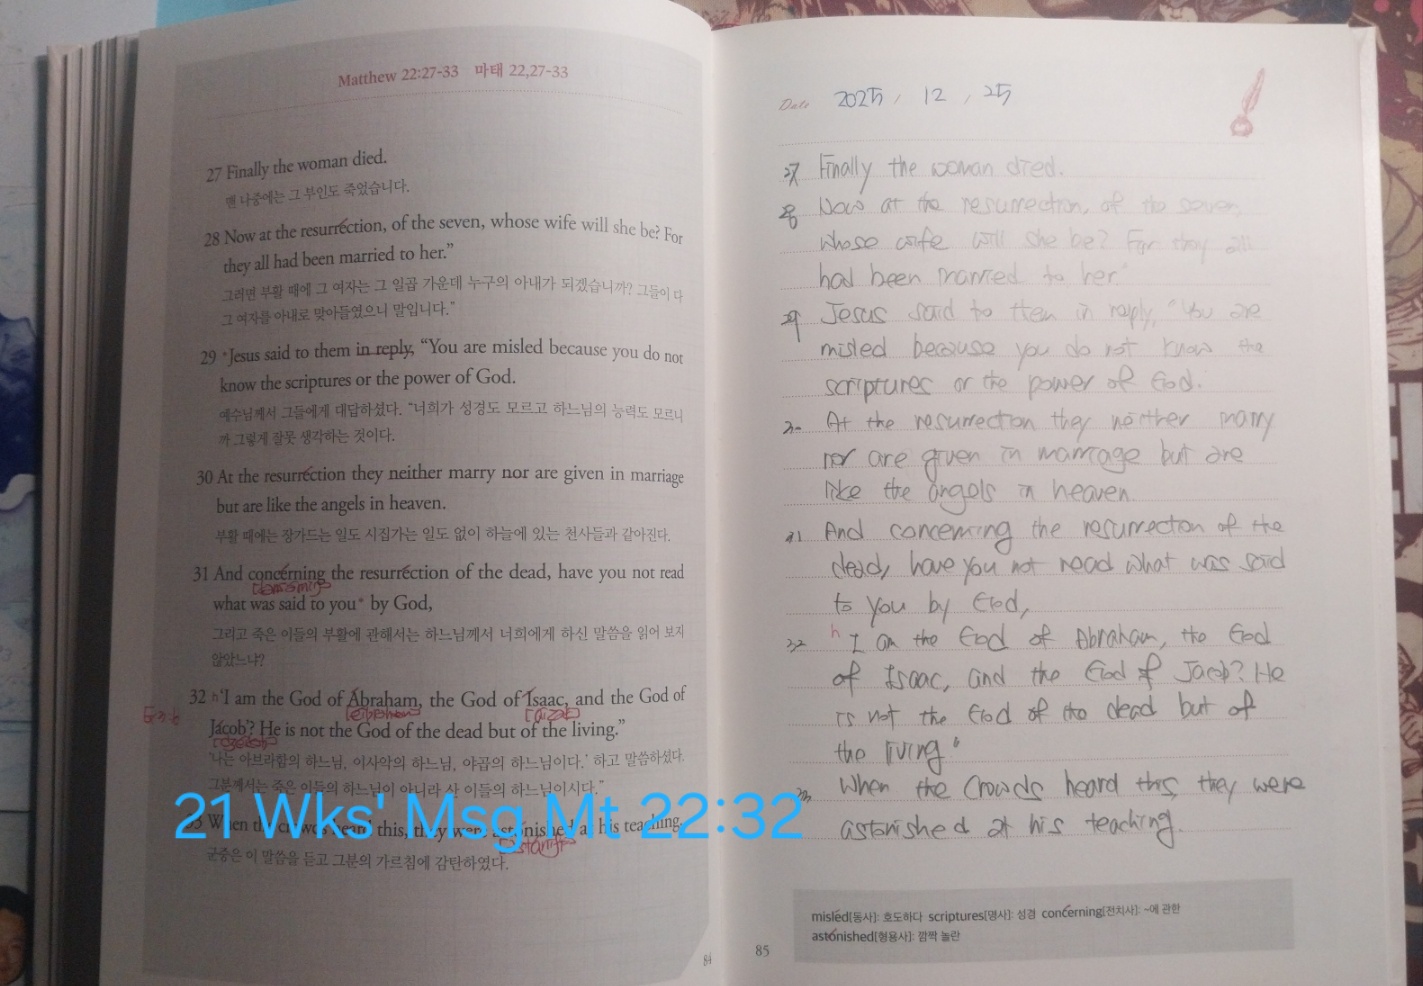 Matthew 22:27-33 마태 22,27-33
27 Finally the woman died.
맨 나중에는 그 부인도 죽었습니다.
28 Now at the resurrection, of the seven, whose wife will she be? For
they all had been married to her.”
그러면 부활 때에 그 여자는 그 일곱 가운데 누구의 아내가 되겠습니까? 그들이 다
그 여자를 아내로 맞아들였으니 말입니다.”
29 *Jesus said to them in reply, “You are misled because you do not
know the scriptures or the power of God.
예수님께서 그들에게 대답하셨다. “너희가 성경도 모르고 하느님의 능력도 모르니
까 그렇게 잘못 생각하는 것이다.
30 At the resurrection they neither marry nor are given in marriage
but are like the angels in heaven.
부활 때에는 장가드는 일도 시집가는 일도 없이 하늘에 있는 천사들과 같아진다.
31 And concerning the resurrection of the dead, have you not read
what was said to you* by God,
그리고 죽은 이들의 부활에 관해서는 하느님께서 너희에게 하신 말씀을 읽어 보지
않았느냐?
32 h‘I am the God of Abraham, the God of Isaac, and the God of
Jacob’? He is not the God of the dead but of the living.”
‘나는 아브라함의 하느님, 이사악의 하느님, 야곱의 하느님이다.’ 하고 말씀하셨다.
그분께서는 죽은 이들의 하느님이 아니라 산 이들의 하느님이시다.”
21 Wks' Msg Mt 22:32
When the crowds heard this, they were astonished at his teaching.
군중은 이 말씀을 듣고 그분의 가르침에 감탄하였다.
84
Date 2025, 12, 25
27 Finally the woman died.
28 Now at the resurrection, of the seven,
whose wife will she be? For they all
had been married to her."
29 Jesus said to them in reply, "You are
misled because you do not know the
scriptures or the power of God.
30 At the resurrection they neither marry
nor are given in marriage but are
like the angels in heaven
31 And concerning the resurrection of the
dead, have you not read what was said
to you by God,
32 h I am the God of Abraham, the God
of Isaac, and the God of Jacob? He
is not the God of the dead but of
the living"
33 When the crowds heard this, they were
astonished at his teaching.
misled[동사]: 호도하다 scriptures[명사]: 성경 concerning[전치사]: ~에 관한
astonished[형용사]: 깜짝 놀란
85